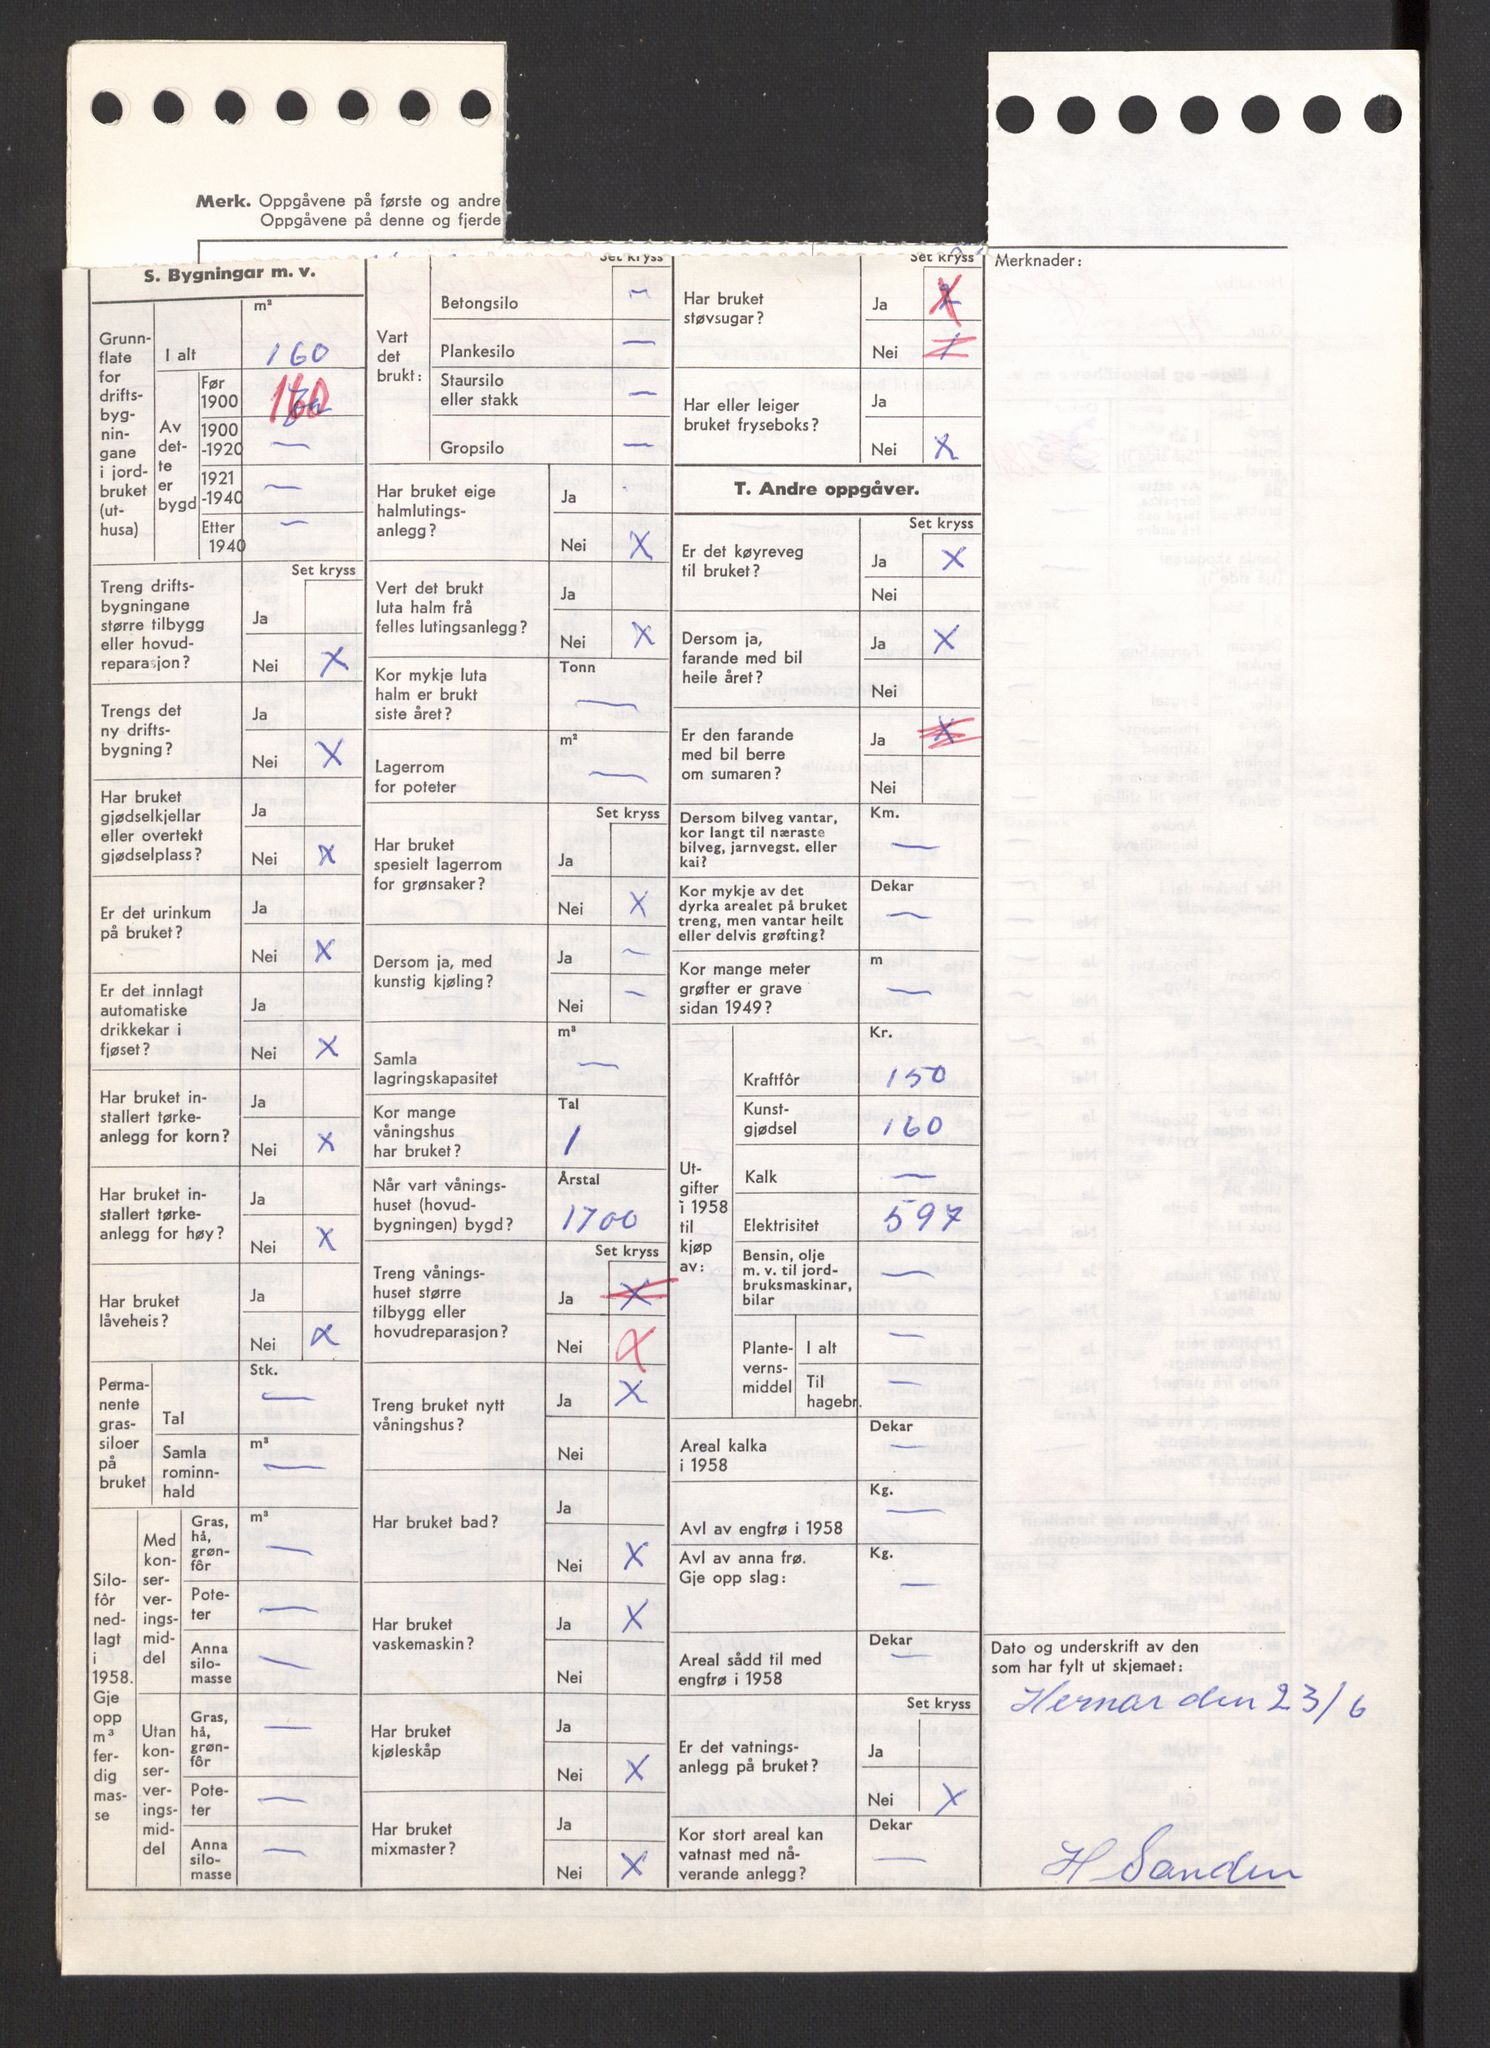 Merk. Oppgåvene på første og andre
Oppgåvene på denne og fjerde
S. Bygningar m. v.
m²
Grunn-
flate
for
drifts-
byg-
nin-
gane
i jord-
bruket
(ut-
husa)
I alt
160
Av
det-
te
er
bygd
Før
1900
160
1900
-1920
—
1921
-1940
—
Etter
1940
—
Set kryss
Treng drifts-
bygningane
større tilbygg
eller hovud-
reparasjon?
Ja
Nei X
Trengs det
ny drifts-
bygning?
Ja
Nei X
Har bruket
gjødselkjellar
eller overtekt
gjødselplass?
Ja
Nei X
Er det urinkum
på bruket?
Ja
Nei X
Er det innlagt
automatiske
drikkekar i
fjøset?
Ja
Nei X
Har bruket in-
stallert tørke-
anlegg for korn?
Ja
Nei X
Har bruket in-
stallert tørke-
anlegg for høy?
Ja
Nei X
Har bruket
låveheis?
Ja
Nei X
Perma-
nente
gras-
siloer
på
bruket
Stk.
Tal —
Samla
rominn-
hald
m³
—
Silo-
fôr
ned-
lagt
i
1958.
Gje
opp
m³
fer-
dig
mas-
se
Med
kon-
ser-
ver-
ings-
mid-
del
Gras,
hå,
grøn-
fôr
m³
—
Pote-
ter —
Anna
silo-
masse —
Utan
kon-
ser-
ver-
ings-
mid-
del
Gras,
hå,
grøn-
fôr —
Pote-
ter —
Anna
silo-
masse —
Set kryss
Vart
det
brukt:
Betongsilo —
Plankesilo —
Staursilo
eller stakk —
Gropsilo —
Har bruket eige
halmlutings-
anlegg?
Ja
Nei X
Vert det brukt
luta halm frå
felles lutingsanlegg?
Ja
Nei X
Kor mykje luta
halm er brukt
siste året?
Tonn
—
Lagerrom
for poteter
m²
—
Set kryss
Har bruket
spesielt lagerrom
for grønsaker?
Ja
Nei X
Dersom ja, med
kunstig kjøling?
Ja —
Nei —
Samla
lagringskapasitet
m³
—
Kor mange
våningshus
har bruket?
Tal
1
Når vart vånings-
huset (hovud-
bygningen) bygd?
Årstal
1700
Set kryss
Treng vånings-
huset større
tilbygg eller
hovudreparasjon?
Ja X
Nei X
Treng bruket nytt
våningshus?
Ja X
Nei
Har bruket bad?
Ja
Nei X
Har bruket
vaskemaskin?
Ja X
Nei
Har bruket
kjøleskåp
Ja
Nei X
Har bruket
mixmaster?
Ja
Nei X
Set kryss
Har bruket
støvsugar?
Ja X
Nei
Har eller leiger
bruket fryseboks?
Ja
Nei X
T. Andre oppgåver.
Set kryss
Er det køyreveg
til bruket?
Ja X
Nei
Dersom ja,
farande med bil
heile året?
Ja X
Nei
Er den farande
med bil berre
om sumaren?
Ja X
Nei
Dersom bilveg vantar,
kor langt til næraste
bilveg, jarnvegst. eller
kai?
Km.
—
Kor mykje av det
dyrka arealet på bruket
treng, men vantar heilt
eller delvis grøfting?
Dekar
—
Kor mange meter
grøfter er grave
sidan 1949?
m
—
Ut-
gifter
i 1958
til
kjøp
av:
Kr.
Kraftfôr 150
Kunst-
gjødsel 160
Kalk —
Elektrisitet 597
Bensin, olje
m. v. til jord-
bruksmaskinar,
bilar —
Plante-
verns-
middel
I alt —
Til
hagebr. —
Areal kalka
i 1958
Dekar
—
Avl av engfrø i 1958
Kg.
—
Avl av anna frø.
Gje opp slag:
Kg.
—
Areal sådd til med
engfrø i 1958
Dekar
—
Set kryss
Er det vatnings-
anlegg på bruket?
Ja
Nei X
Kor stort areal kan
vatnast med nå-
verande anlegg?
Dekar
—
Merknader:
Dato og underskrift av den
som har fylt ut skjemaet:
Hernar den 23/6
H Sanden